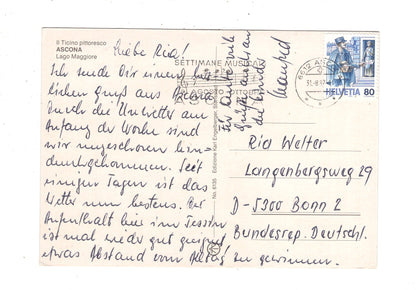 Il Ticino pittoresco
ASCONA
Lago Maggiore
Liebe Ria!
Ich sende Dir einen herz-
lichen Gruß aus Ascona.
Durch die Unwetter am
Anfang der Woche sind
wir ungeschoren hin-
durchgekommen. Seit
einigen Tagen ist das
Wetter zum besten. Der
Aufenthalt hier im Tessin
ist mal wieder gut geeignet
etwas Abstand vom Alltag zu gewinnen.
Für heute viele
Grüße auch an
die Kinder
Manfred
SETTIMANE MUSICALI
AGOSTO OTTOBRE
Edizione Karl Engelberger
No. 6135
6612
HELVETIA 80
Ria Welter
Langenbergsweg 29
D-5300 Bonn 2
Bundesrep. Deutschl.